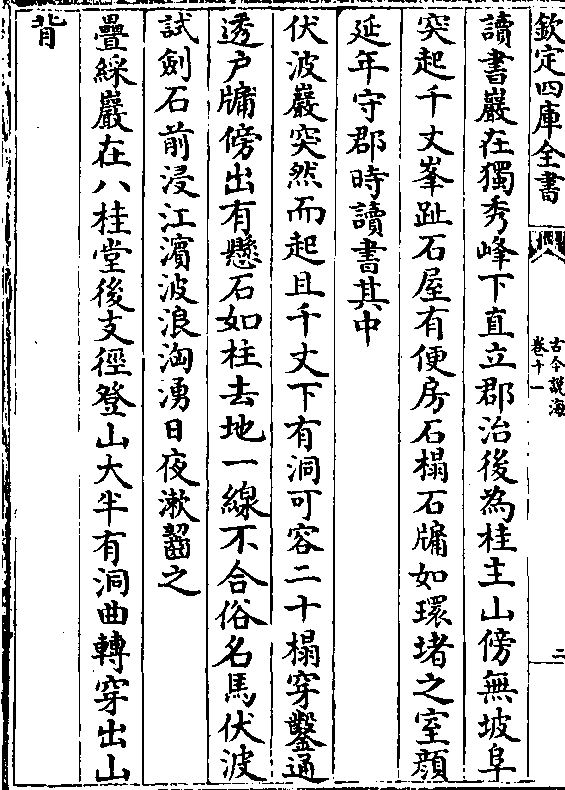 欽定四庫全書
古今說海
卷十一
二
讀書巖在獨秀峰下直立郡治後為桂主山傍無坡阜
突起千丈峯趾石屋有便房石榻石牖如環堵之室顔
延年守郡時讀書其中
伏波巖突然而起且千丈下有洞可容二十榻穿鑿通
透户牖傍出有懸石如柱去地一線不合俗名馬伏波
試劍石前浸江濵波浪洶湧日夜漱齧之
疊綵巖在八桂堂後支徑登山大半有洞曲轉穿出山
背